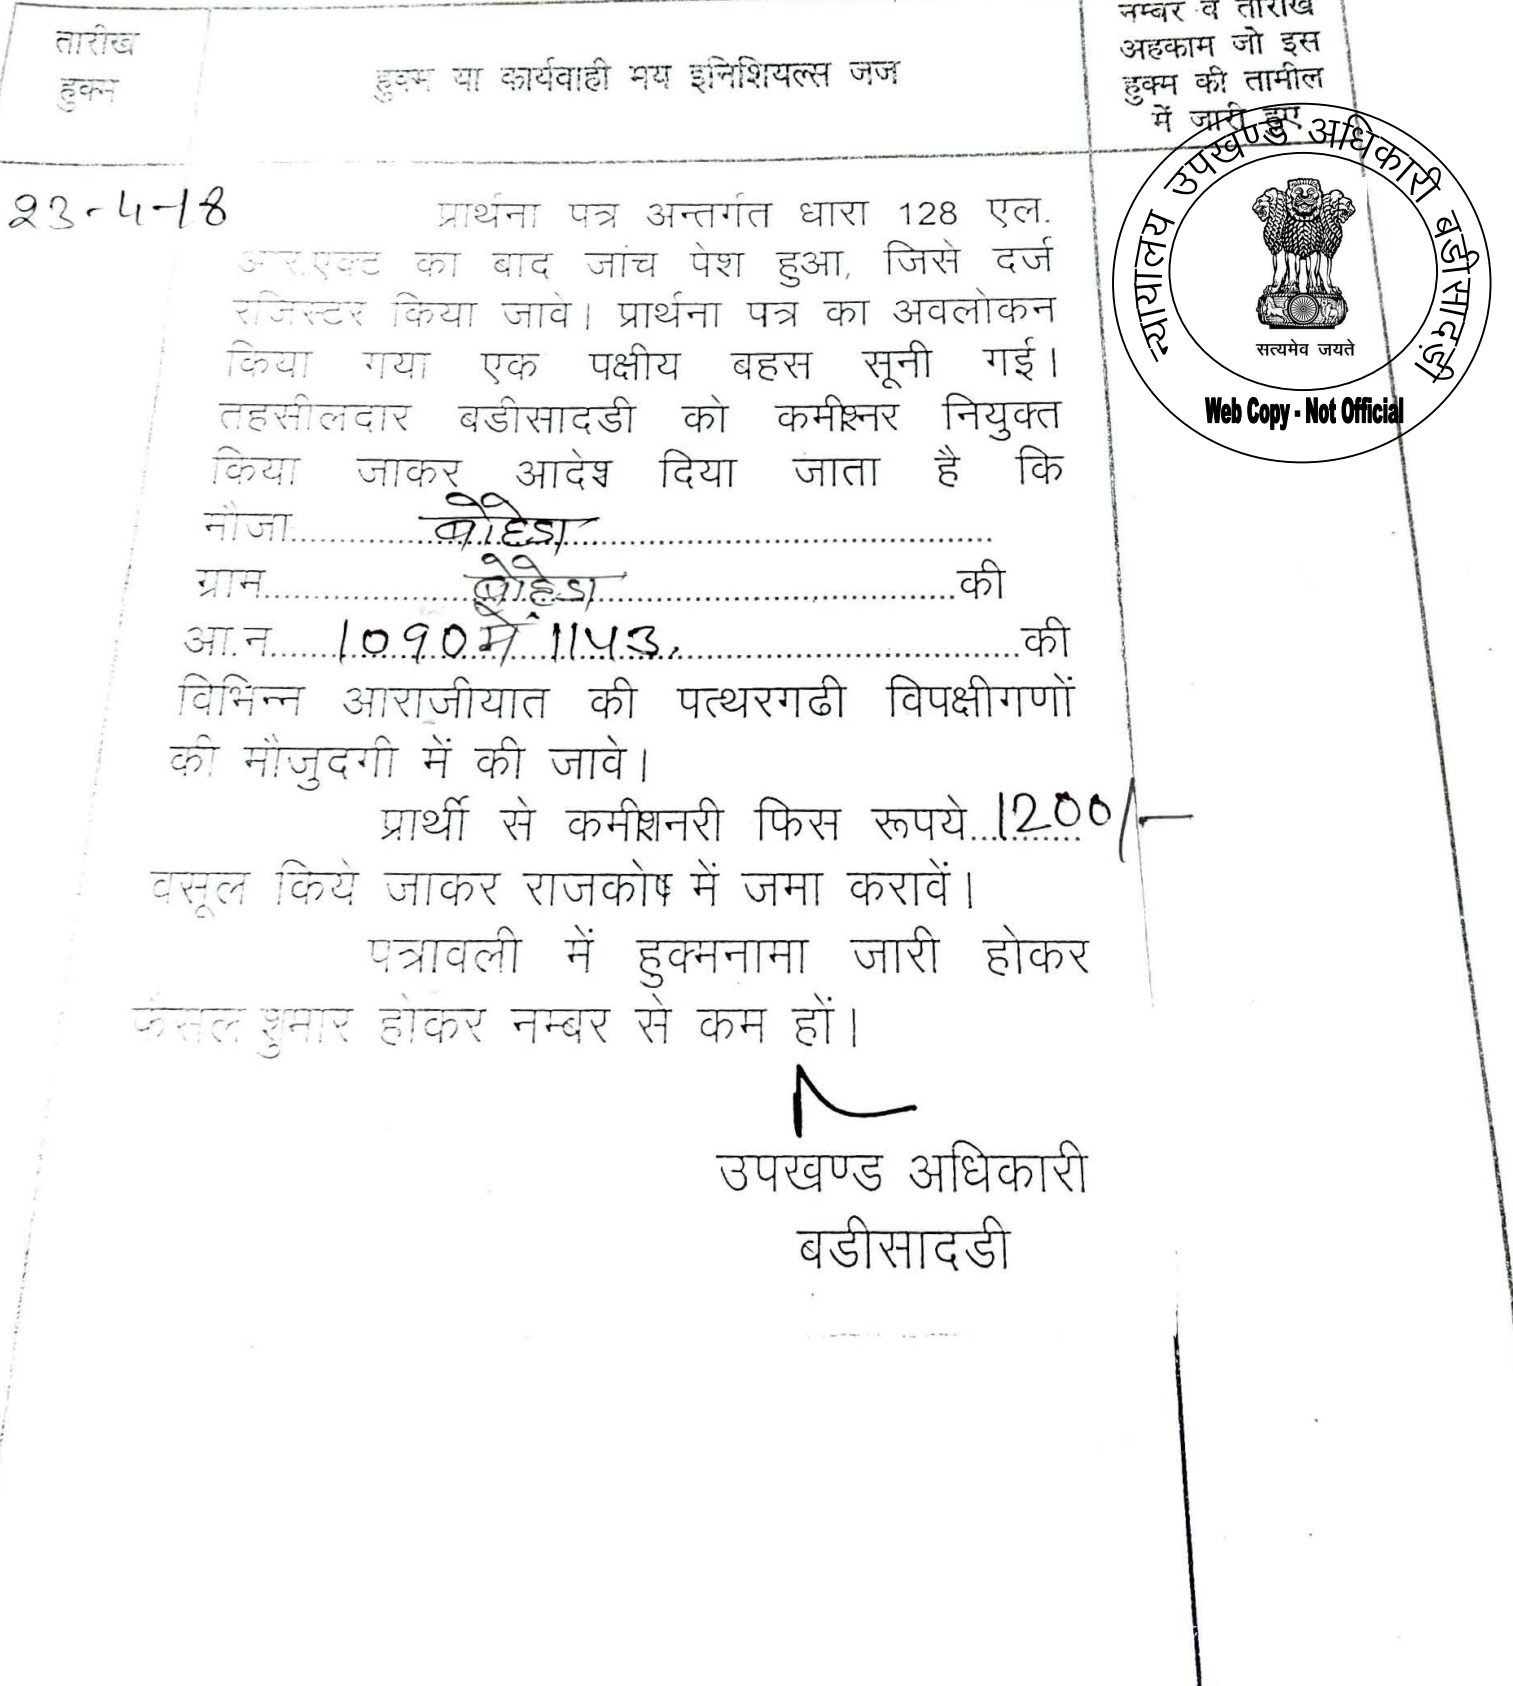 तारीख
हुक्म
हुक्म या कार्यवाही मय इनिशियल्स जज
नम्बर व तारीख
अहकाम जो इस
हुक्म की तामील
में जारी हुए
न्यायालय उपखण्ड अधिकारी बडीसादड़ी
सत्यमेव जयते
Web Copy - Not Official
23-4-18
प्रार्थना पत्र अन्तर्गत धारा 128 एल.
आर.एक्ट का बाद जांच पेश हुआ, जिसे दर्ज
रजिस्टर किया जावे। प्रार्थना पत्र का अवलोकन
किया गया एक पक्षीय बहस सूनी गई।
तहसीलदार बडीसादडी को कमीश्नर नियुक्त
किया जाकर आदेश दिया जाता है कि
मौजा......बोहेडा......
ग्राम......बोहेडा......की
आ.न......1090 में 1143,......की
विभिन्न आराजीयात की पत्थरगढी विपक्षीगणों
की मौजुदगी में की जावे।
प्रार्थी से कमीशनरी फिस रूपये...1200/-
वसूल किये जाकर राजकोष में जमा करावें।
पत्रावली में हुक्मनामा जारी होकर
फैसल शुमार होकर नम्बर से कम हों।
उपखण्ड अधिकारी
बडीसादडी